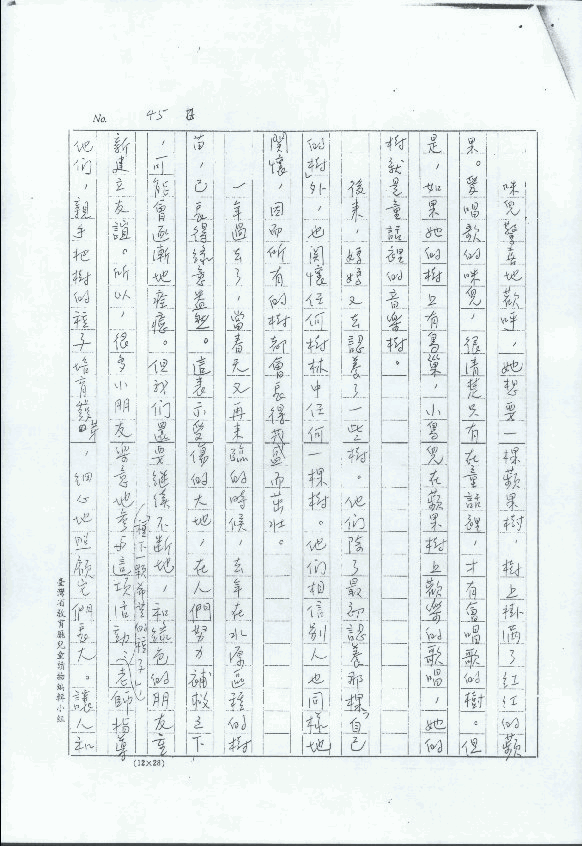 No. 45
咪兒驚喜地歡呼，她想要一棵蘋果樹，樹上掛滿了紅紅的蘋
果。愛唱歌的咪兒，很清楚只有在童話裡，才有會唱歌的樹。但
是，如果她的樹上有鳥巢，小鳥兒在蘋果樹上歡樂的歌唱，她的
樹就是童話裡的音樂樹。
後來，媽媽又去認養了一些樹。他們除了最初認養那棵「自己
的樹」外，也關懷任何樹林中任何一棵樹。他們相信別人也同樣地
關懷，因而所有的樹都會長得茂盛而茁壯。
一年過去了，當春天又再來臨的時候，去年在水源區種的樹
苗，已長得綠意盎然。這表示受傷的大地，在人們努力補救之下
，可能會逐漸地痊癒。但我們還要繼續不斷地，和綠色的朋友重
新建立友誼。所以，很多小朋友
地參與這項活動（種下一顆希望的種子）。老師指導
他們，親手把樹的種子培育發芽，細心地照顧它們長大。讓人和
臺灣省教育廳兒童讀物編輯小組
(12×28)